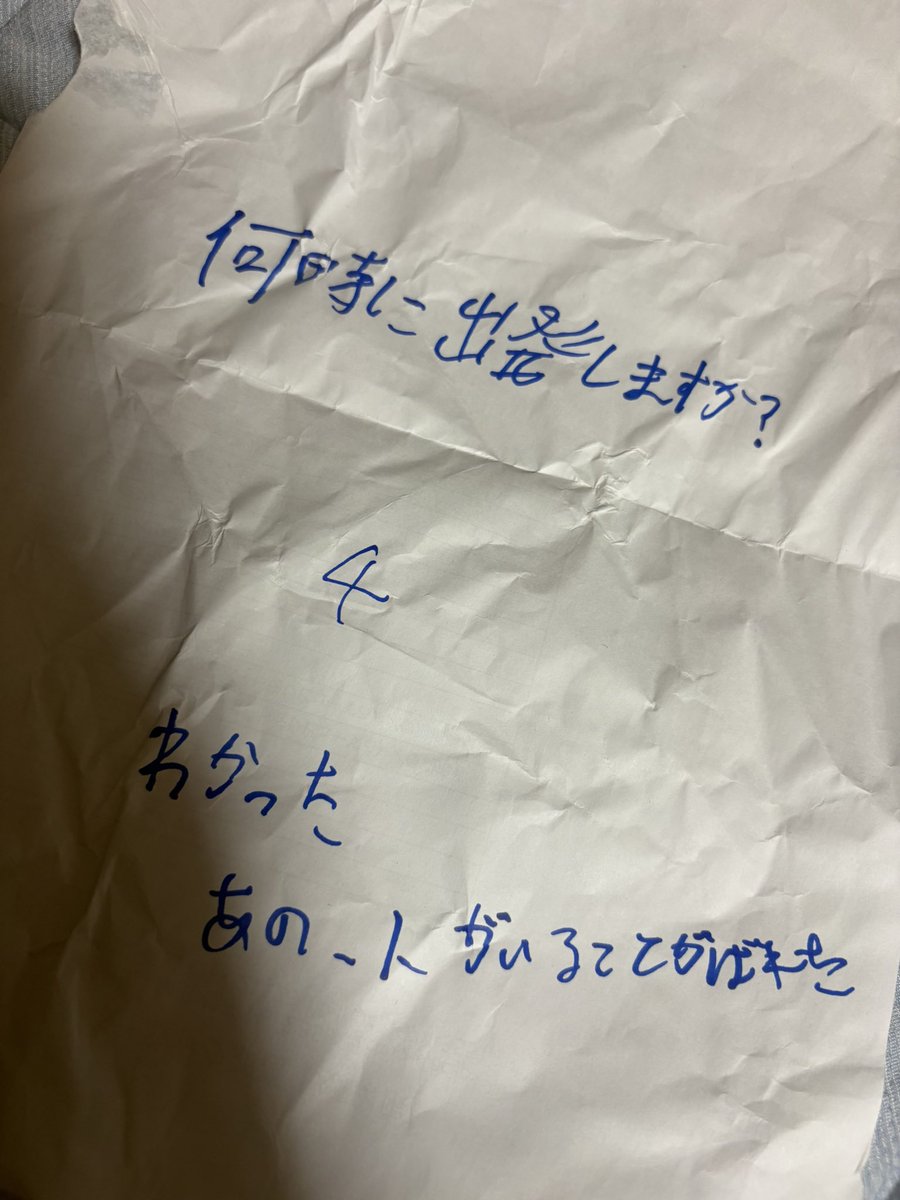 何時に出発しますか?
4
わかった
あの、人がいることがばれた